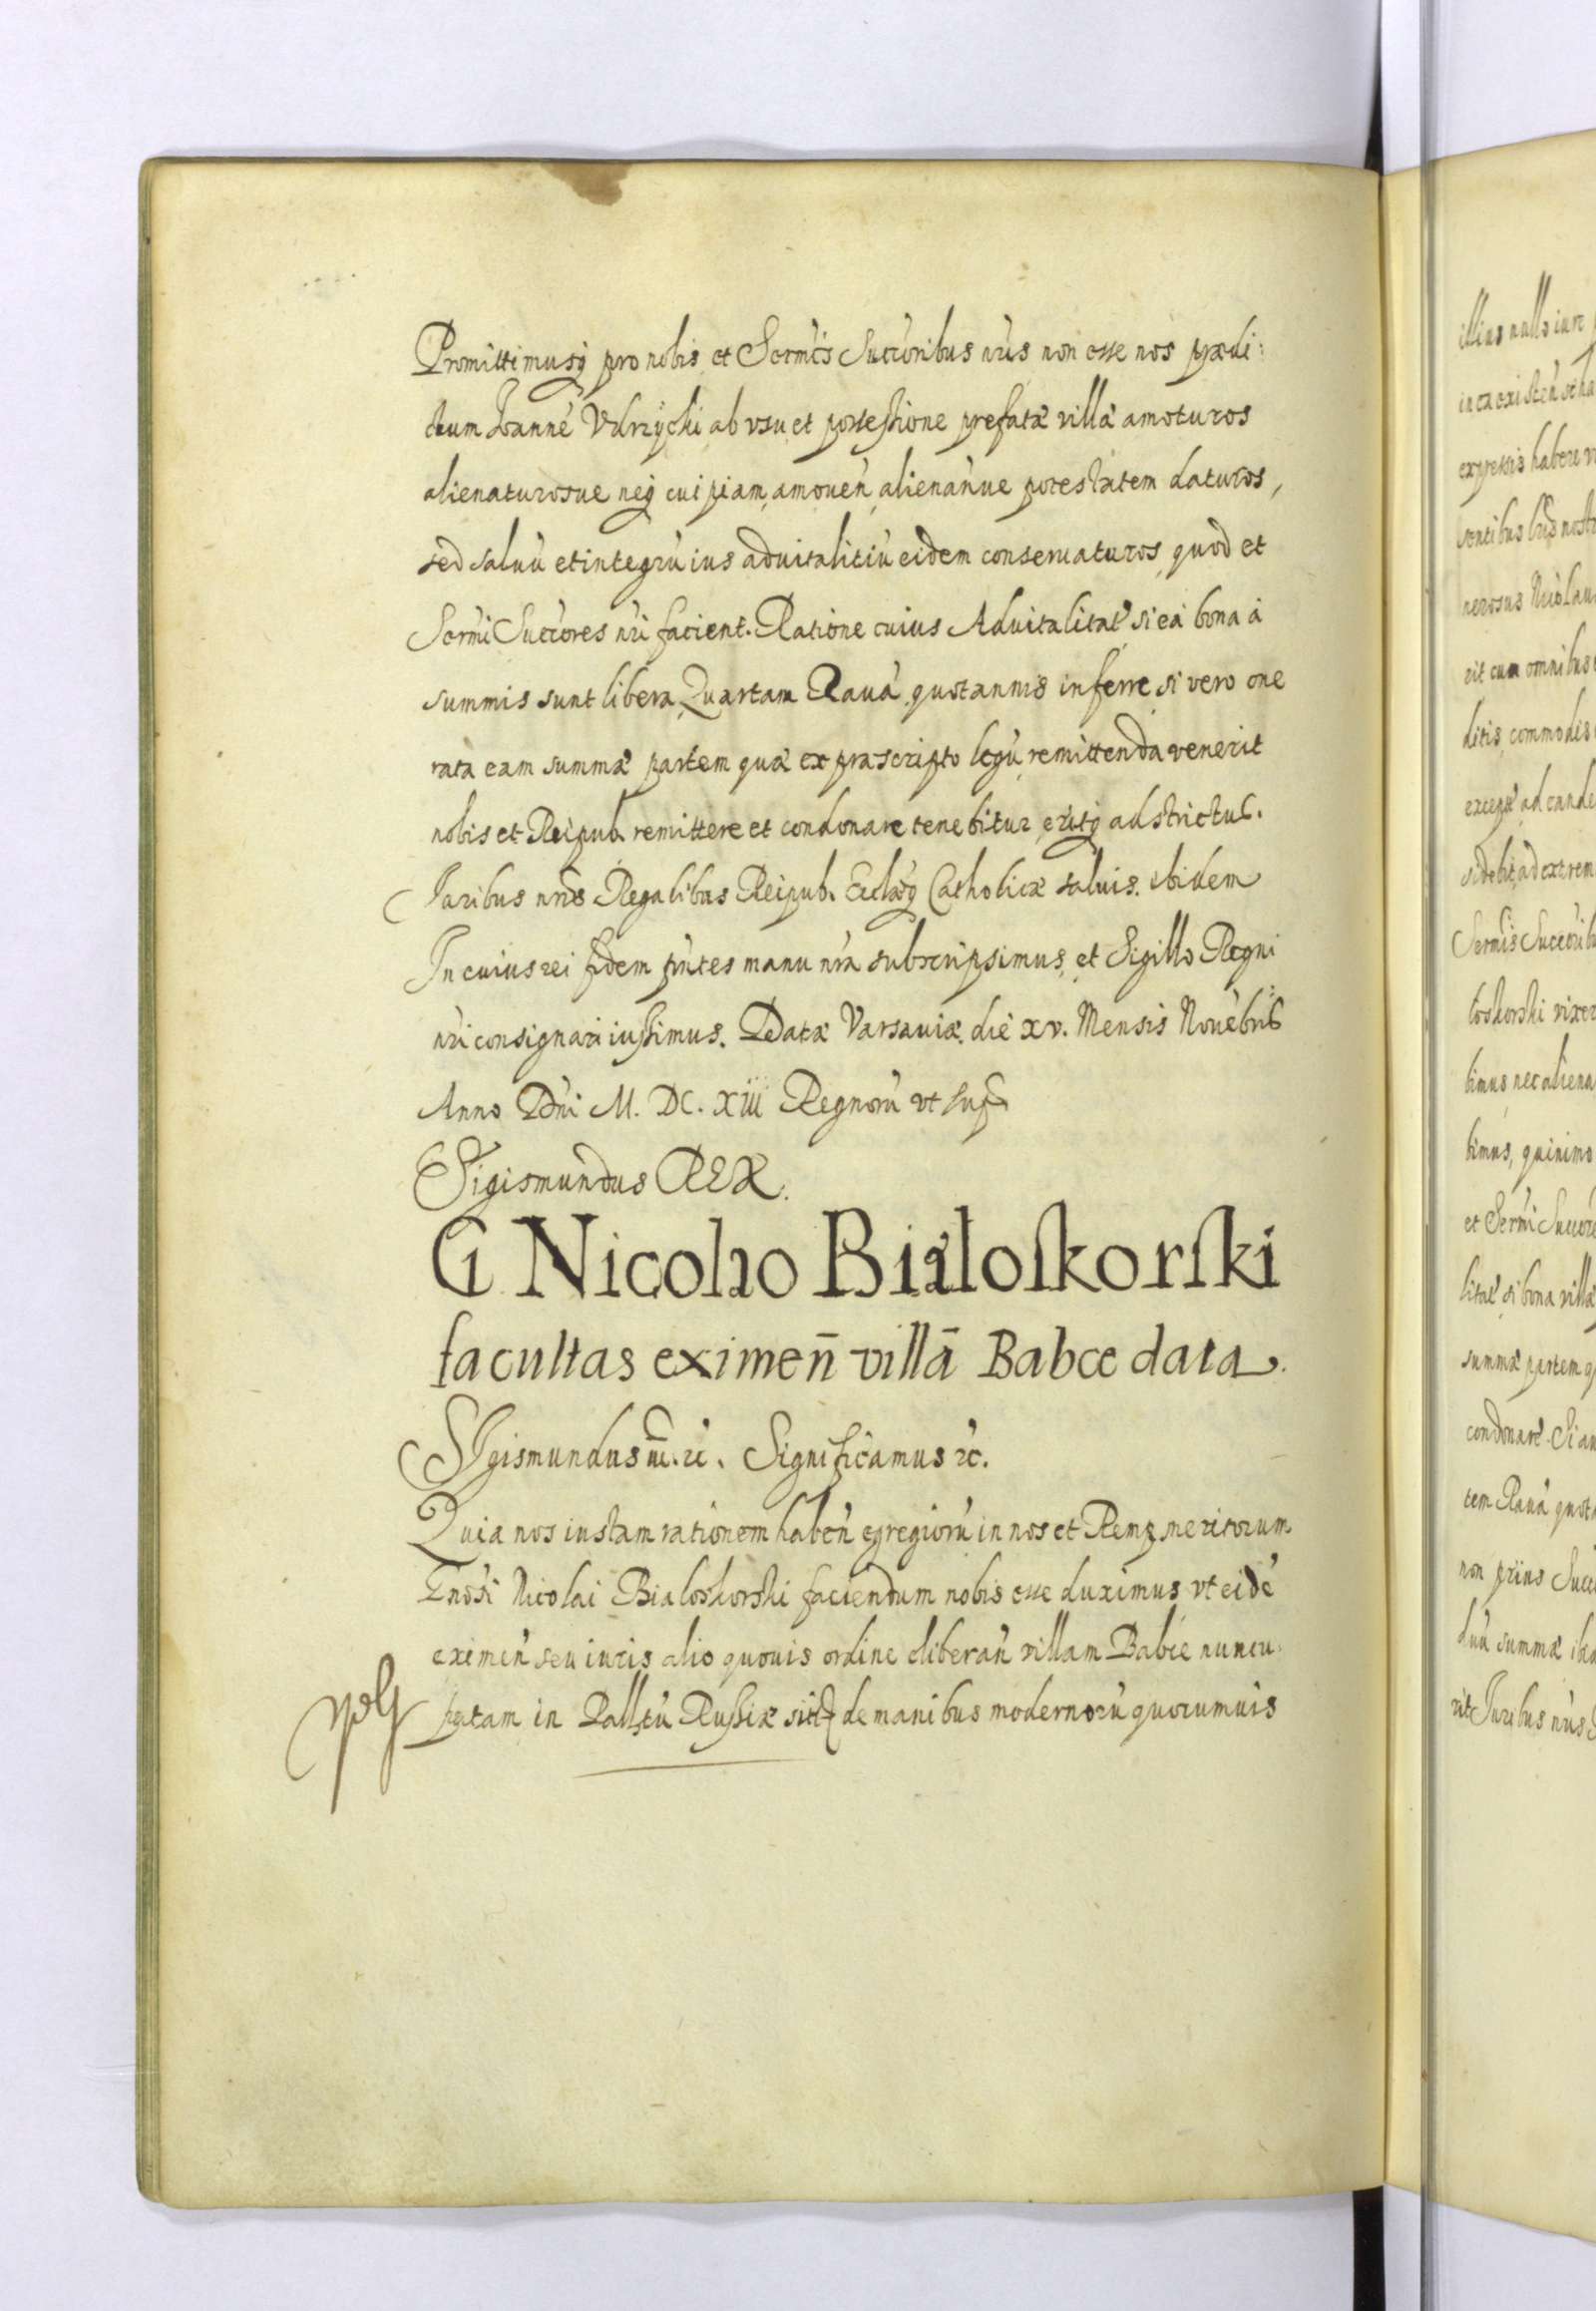 Promittimusq pro nobis et Sermis Succoribus nris non esse nos prædi:
ctum Joannē Vdrzÿcki ab vsu et possessione prefatæ villæ amoturos
alienaturosue neq cuipiam amoueñ alienañue potestatem daturos,
sed saluū et integrū ius aduitalitiū eidem conseruaturos, quod et
Sermi Succores nri facient. Ratione cuius Aduitalitat̃ si ea bona a
summis sunt libera, Quartam Rauā quotannis inferre, si vero one
rata eam summæ partem quæ ex præscripto legū remittenda venerit
nobis et Reipub. remittere et condonare tenebitur, eritq adstrictus.
Juribus nris Regalibus Reipub. Ecclæq Catholicæ saluis. ibidem
In cuius rei fidem pntes manu nra subscripsimus, et Sigillo Regni
nri consignari iussimus. Datæ Varsauiæ. die xv. Mensis Nouēbris
Anno Dni M. DC. XIII Regnorū vt supra
Sigismundus REX.
G Nicolao Białoskorski
facultas eximen̄ villā Babce data.
SIgismundus III. &c. Significamus &c.
Quia nos iustam rationem habeñ egregiorū in nos et Remp meritorum
Gnosi Nicolai Bialoskorski faciendum nobis esse duximus vt eidē
eximeñ seu iuris alio quouis ordine liberañ villam Babce nuncu
patam in Palltū Russiæ sitā de manibus modernorū quorumuis
illius nullo iure
expressis habere
sentibus lris nostr
nerosus Nicolau
rit cum omnibus
ditis, commodis
except̃ ad eande
sidebit, ad extrem
Sermis Succorib
loskorski vixer
bimus, nec aliena
bimus, quinimo
et Sermi Succore
litat̃ si bona villæ
summæ partem q
condonare. Si au
tem Rauā quota
non prius Succ
duū summæ
rit Juribus nris